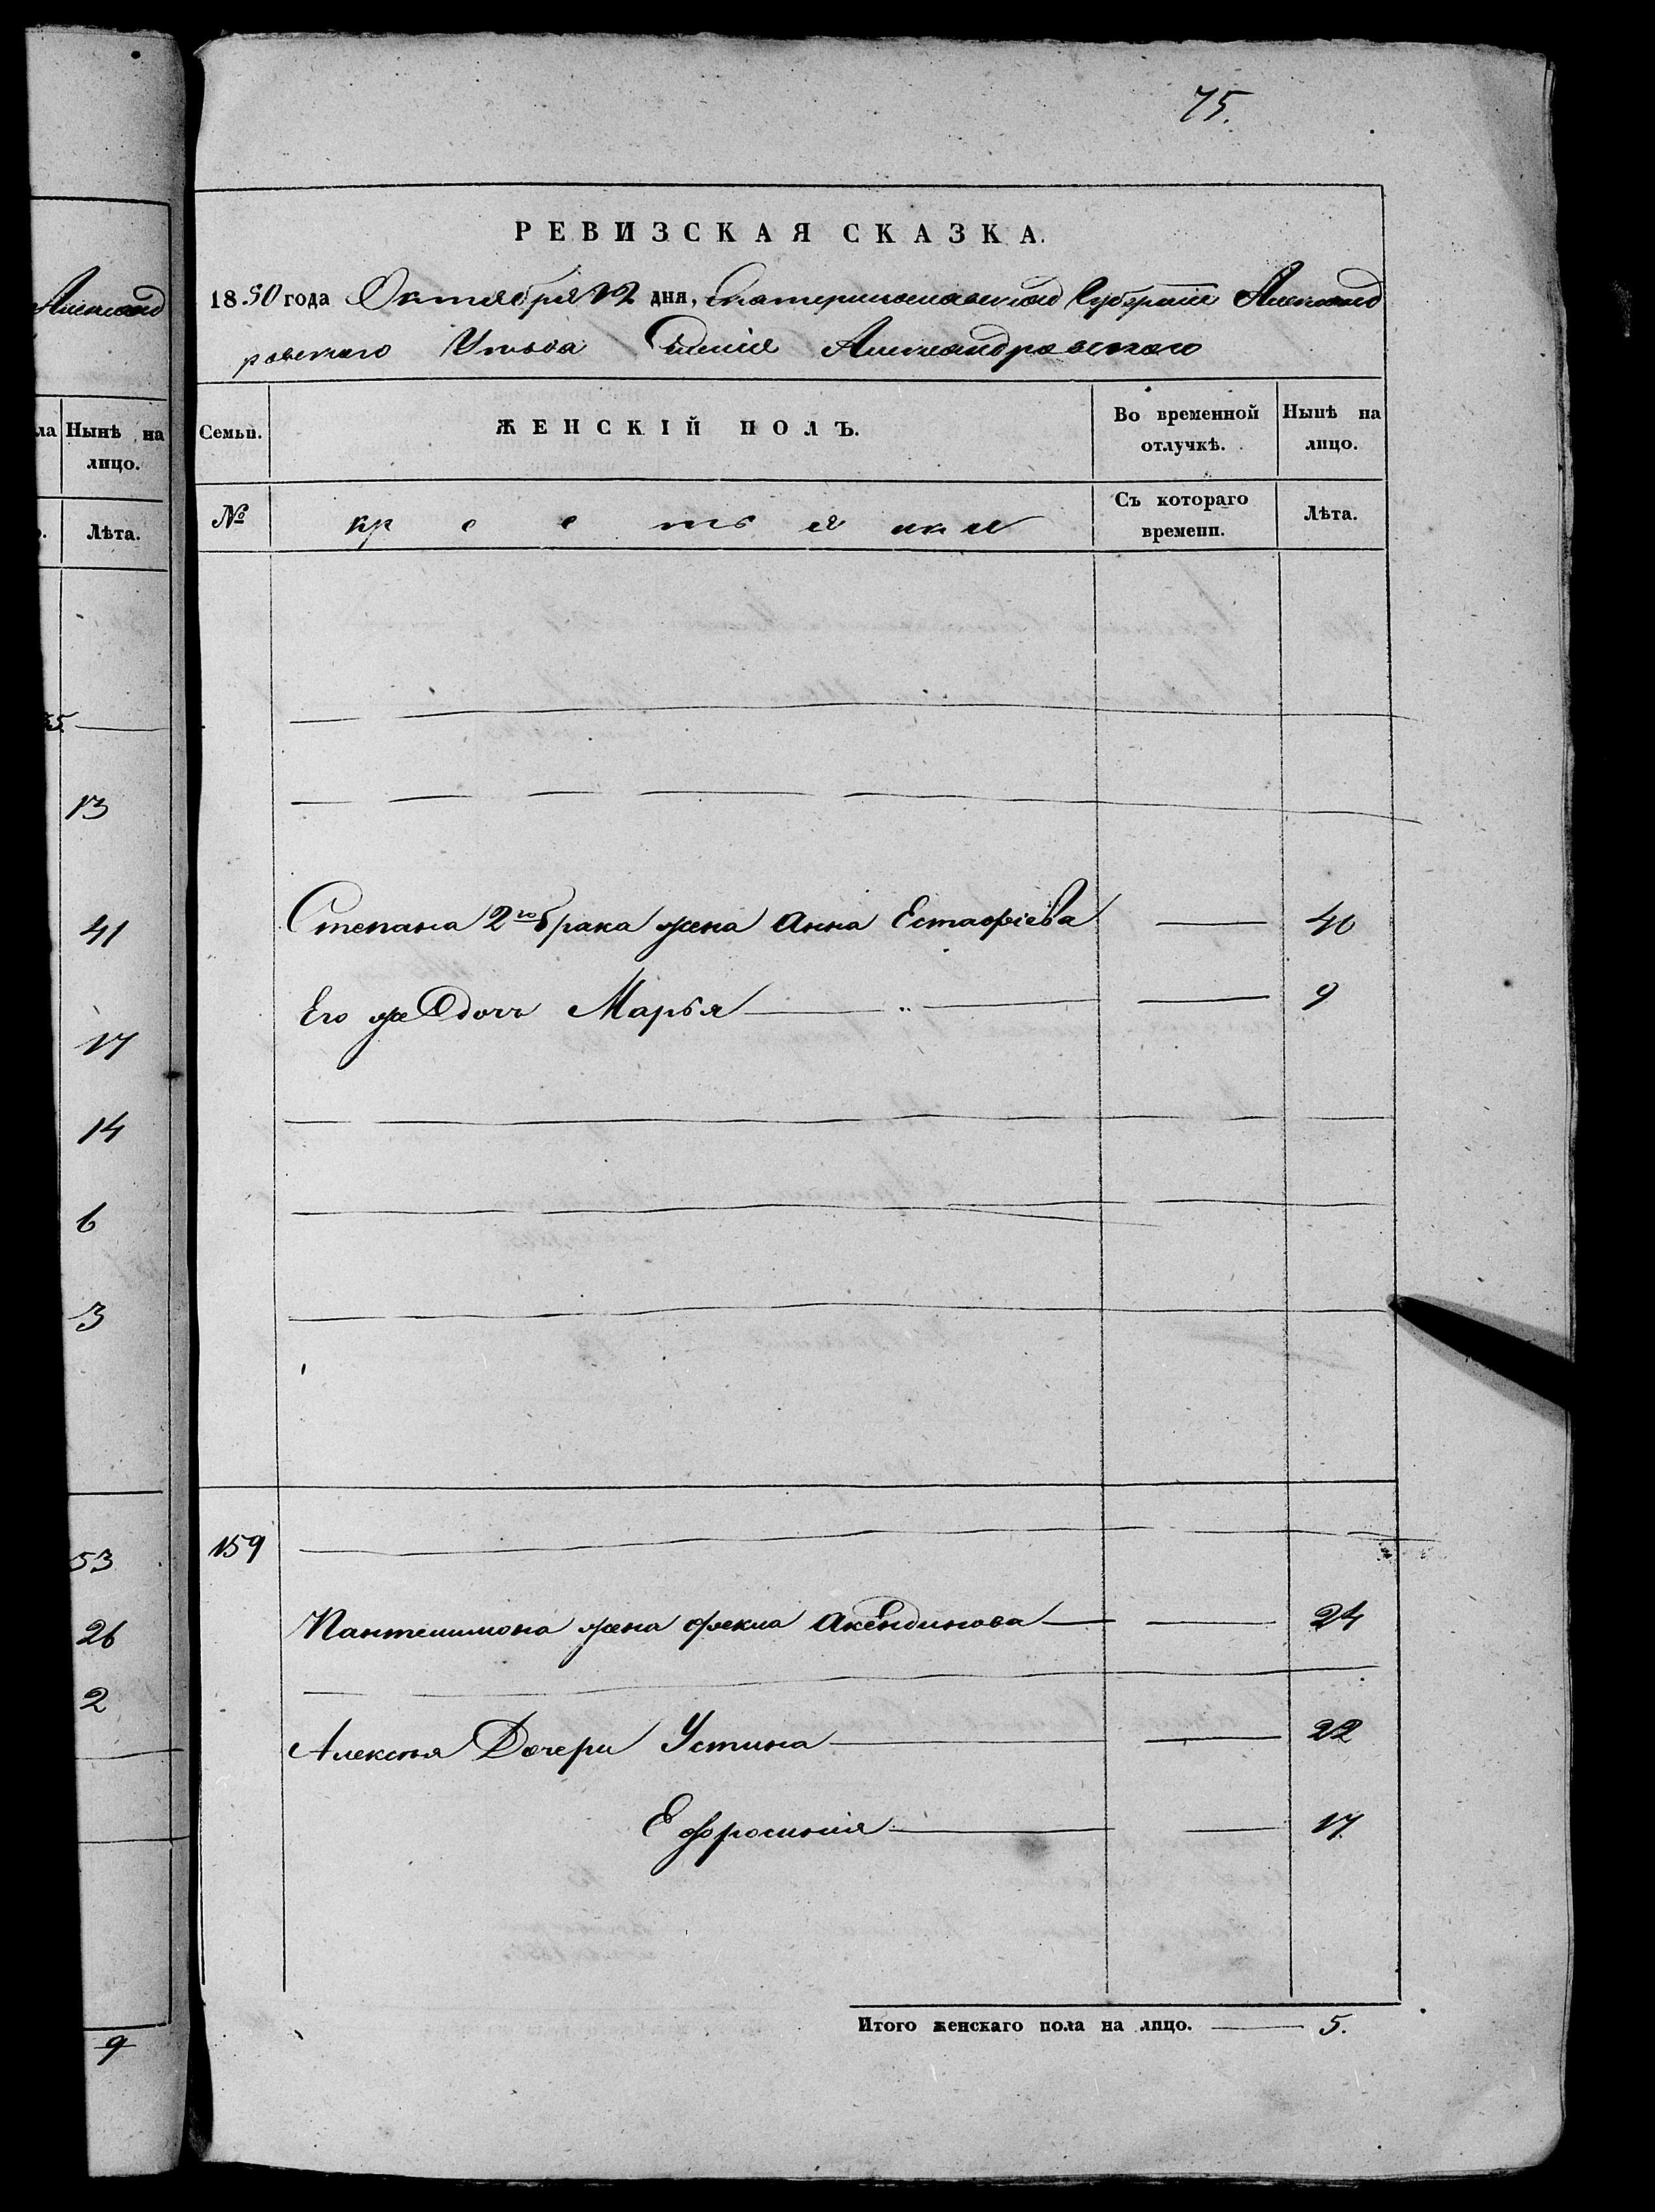 75.
РЕВИЗСКАЯ СКАЗКА.
1850 года Октября 12 дня, Екатеринославской Губерніи Александ
ровскаго Уѣзда Селенія Александровскаго
Александ
Семьи.
ЖЕНСКІЙ ПОЛЪ.
Во временной отлучкѣ.
Нынѣ на лицо.
№
крестьянки
Съ котораго времени.
Лѣта.
ла
Нынѣ на лицо.
Лѣта.
35.
13
41
17
14
6
3
53
26
2
9
Степана 2го брака жена Анна Естафіева 40
Его же дочь Марья 9
159
Пантелимона жена Фекла Акендинова 24
Алексѣя Дочери Устина 22
Ефросинія 17
Итого женскаго пола на лицо. 5.